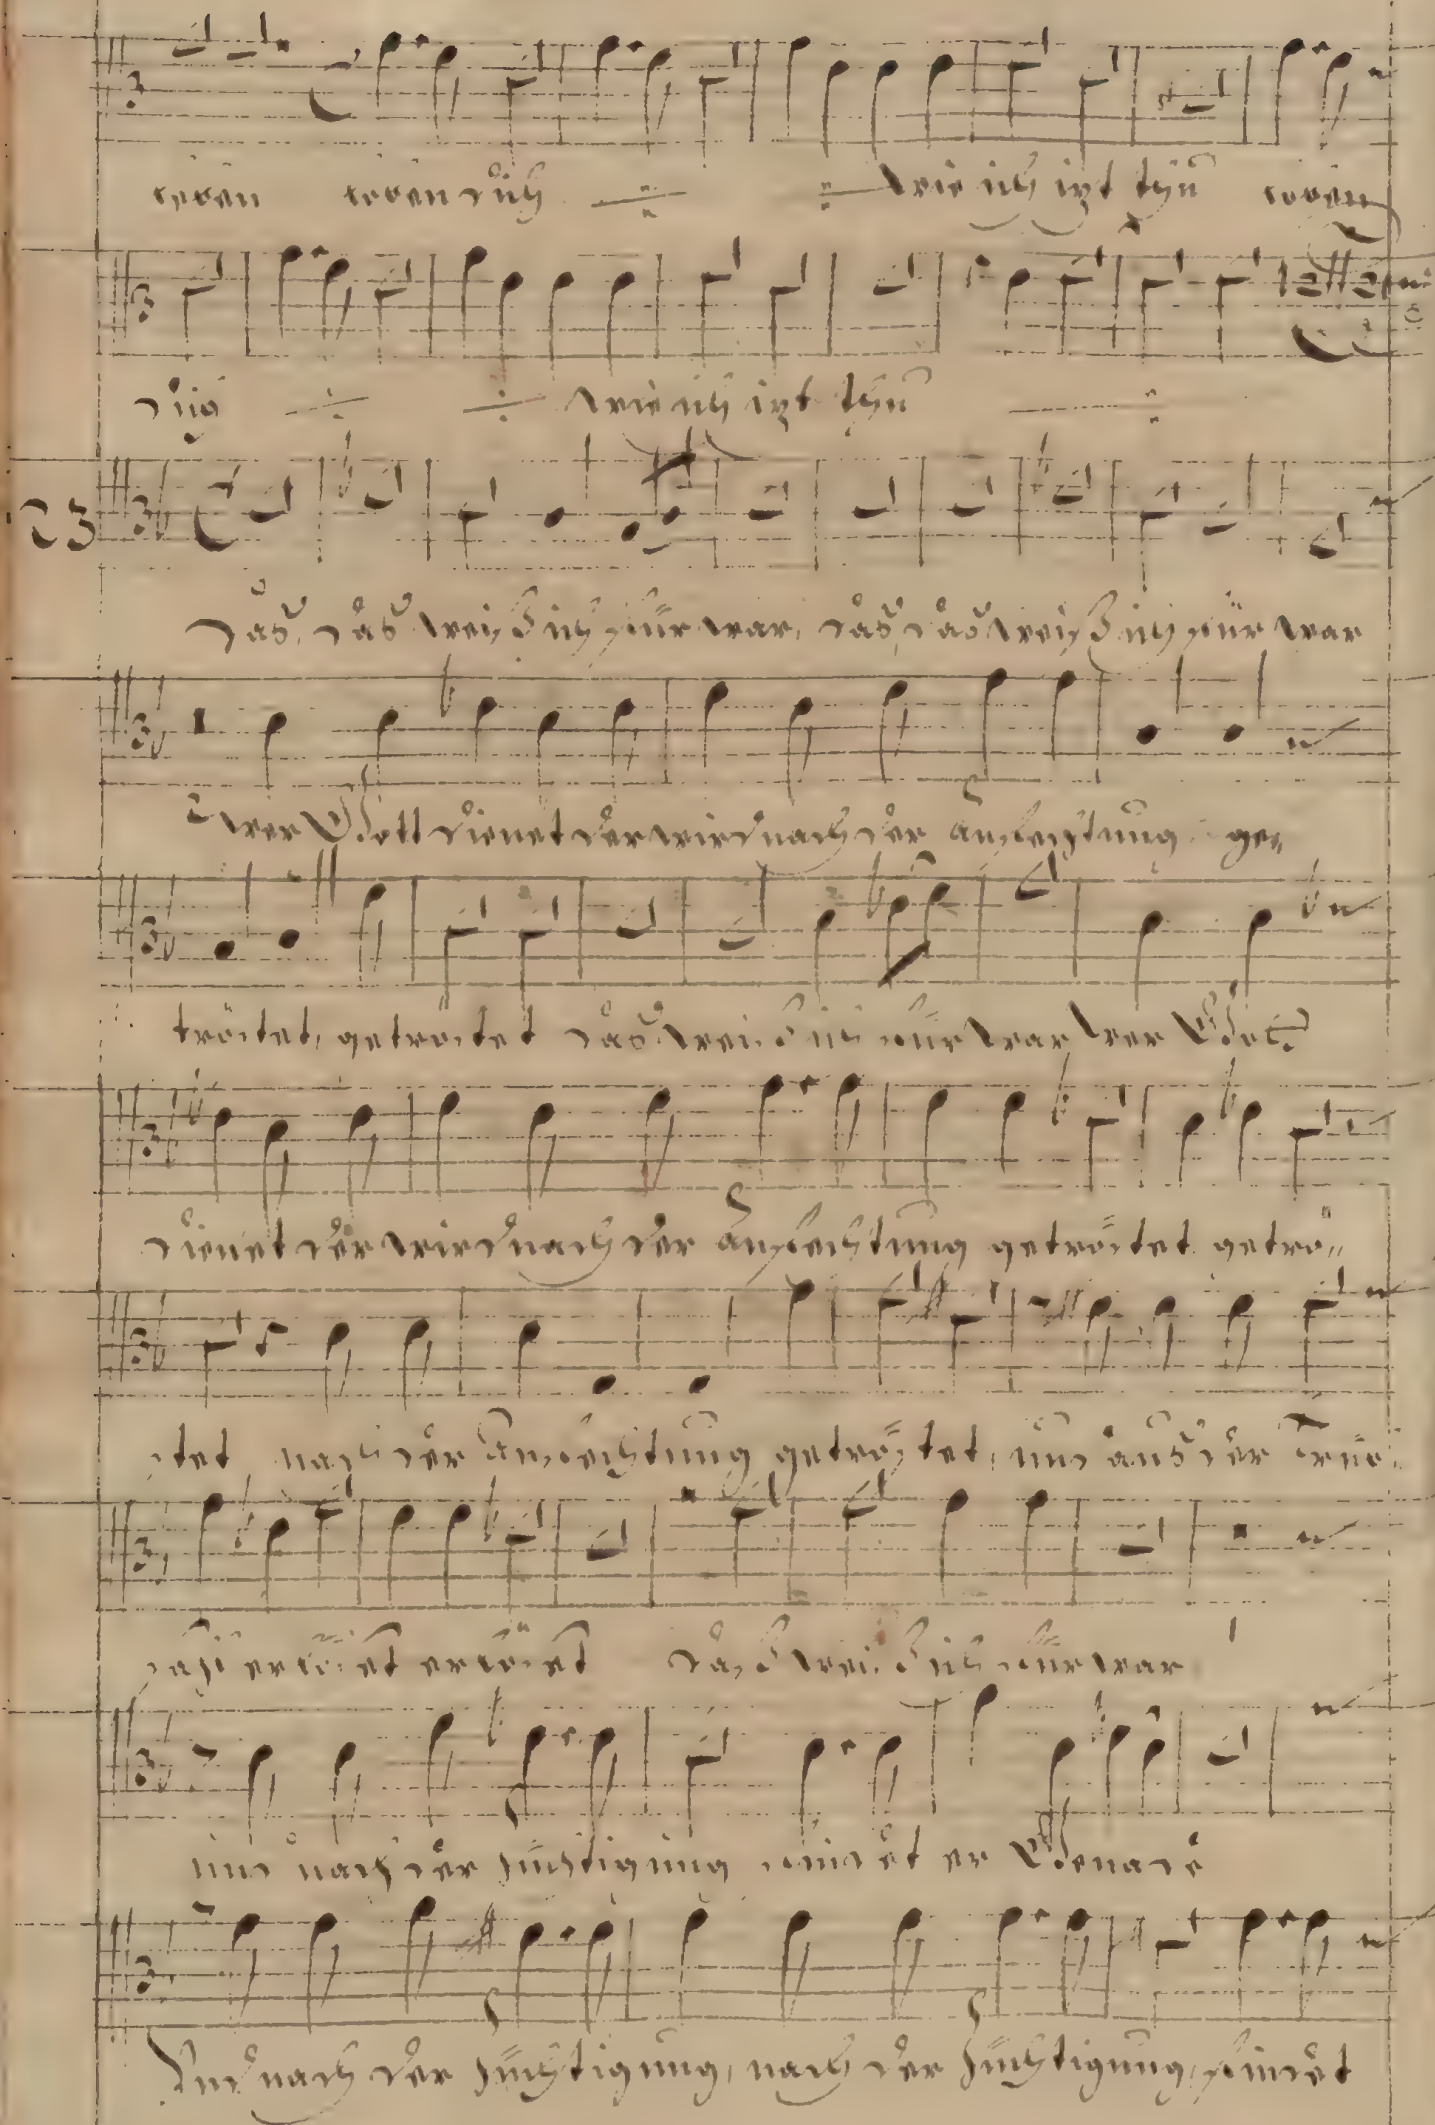 leben leben dich wie ich izt thu leben
dich wie ich izt thu
23
Das, das weiß ich fürwar, das, das weiß ich fürwar
Wer Gott dienet der wird nach der Anfechtung ge-
tröstet, getröstet das weiß ich fürwar wer Gott
dienet der wird nach der Anfechtung getröstet getrö-
stet nach der Anfechtung getröstet, und aus der Trüb-
sahl erlöset erlöset das weiß ich fürwar
und nach der züchtigung findet er Genade
Und nach der züchtigung, nach der züchtigung, findet